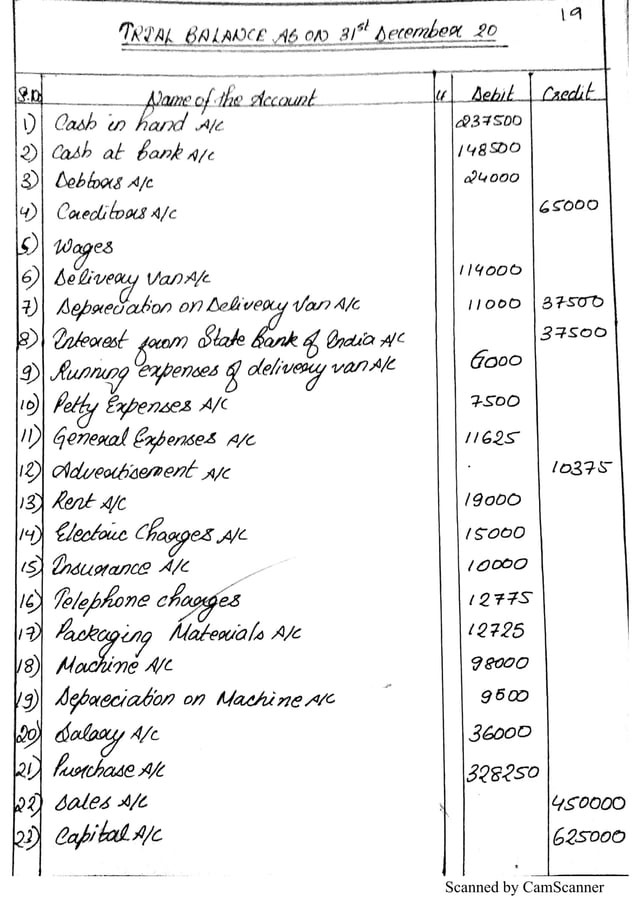 19
TRIAL BALANCE AS ON 31st December 20
S.No Name of the Account Lf Debit Credit
1) Cash in hand A/c 237500
2) Cash at Bank A/c 148500
3) Debtors A/c 24000
4) Creditors A/c 65000
5) Wages
6) Delivery Van A/c 114000
7) Depreciation on Delivery Van A/c 11000 37500
8) Interest from State Bank of India A/c 37500
9) Running expenses of delivery van A/c 6000
10) Petty Expenses A/c 7500
11) General Expenses A/c 11625
12) Advertisement A/c 10375
13) Rent A/c 19000
14) Electric Charges A/c 15000
15) Insurance A/c 10000
16) Telephone charges 12775
17) Packaging Materials A/c 12725
18) Machine A/c 98000
19) Depreciation on Machine A/c 9500
20) Salary A/c 36000
21) Purchase A/c 328250
22) Sales A/c 450000
23) Capital A/c 625000
Scanned by CamScanner